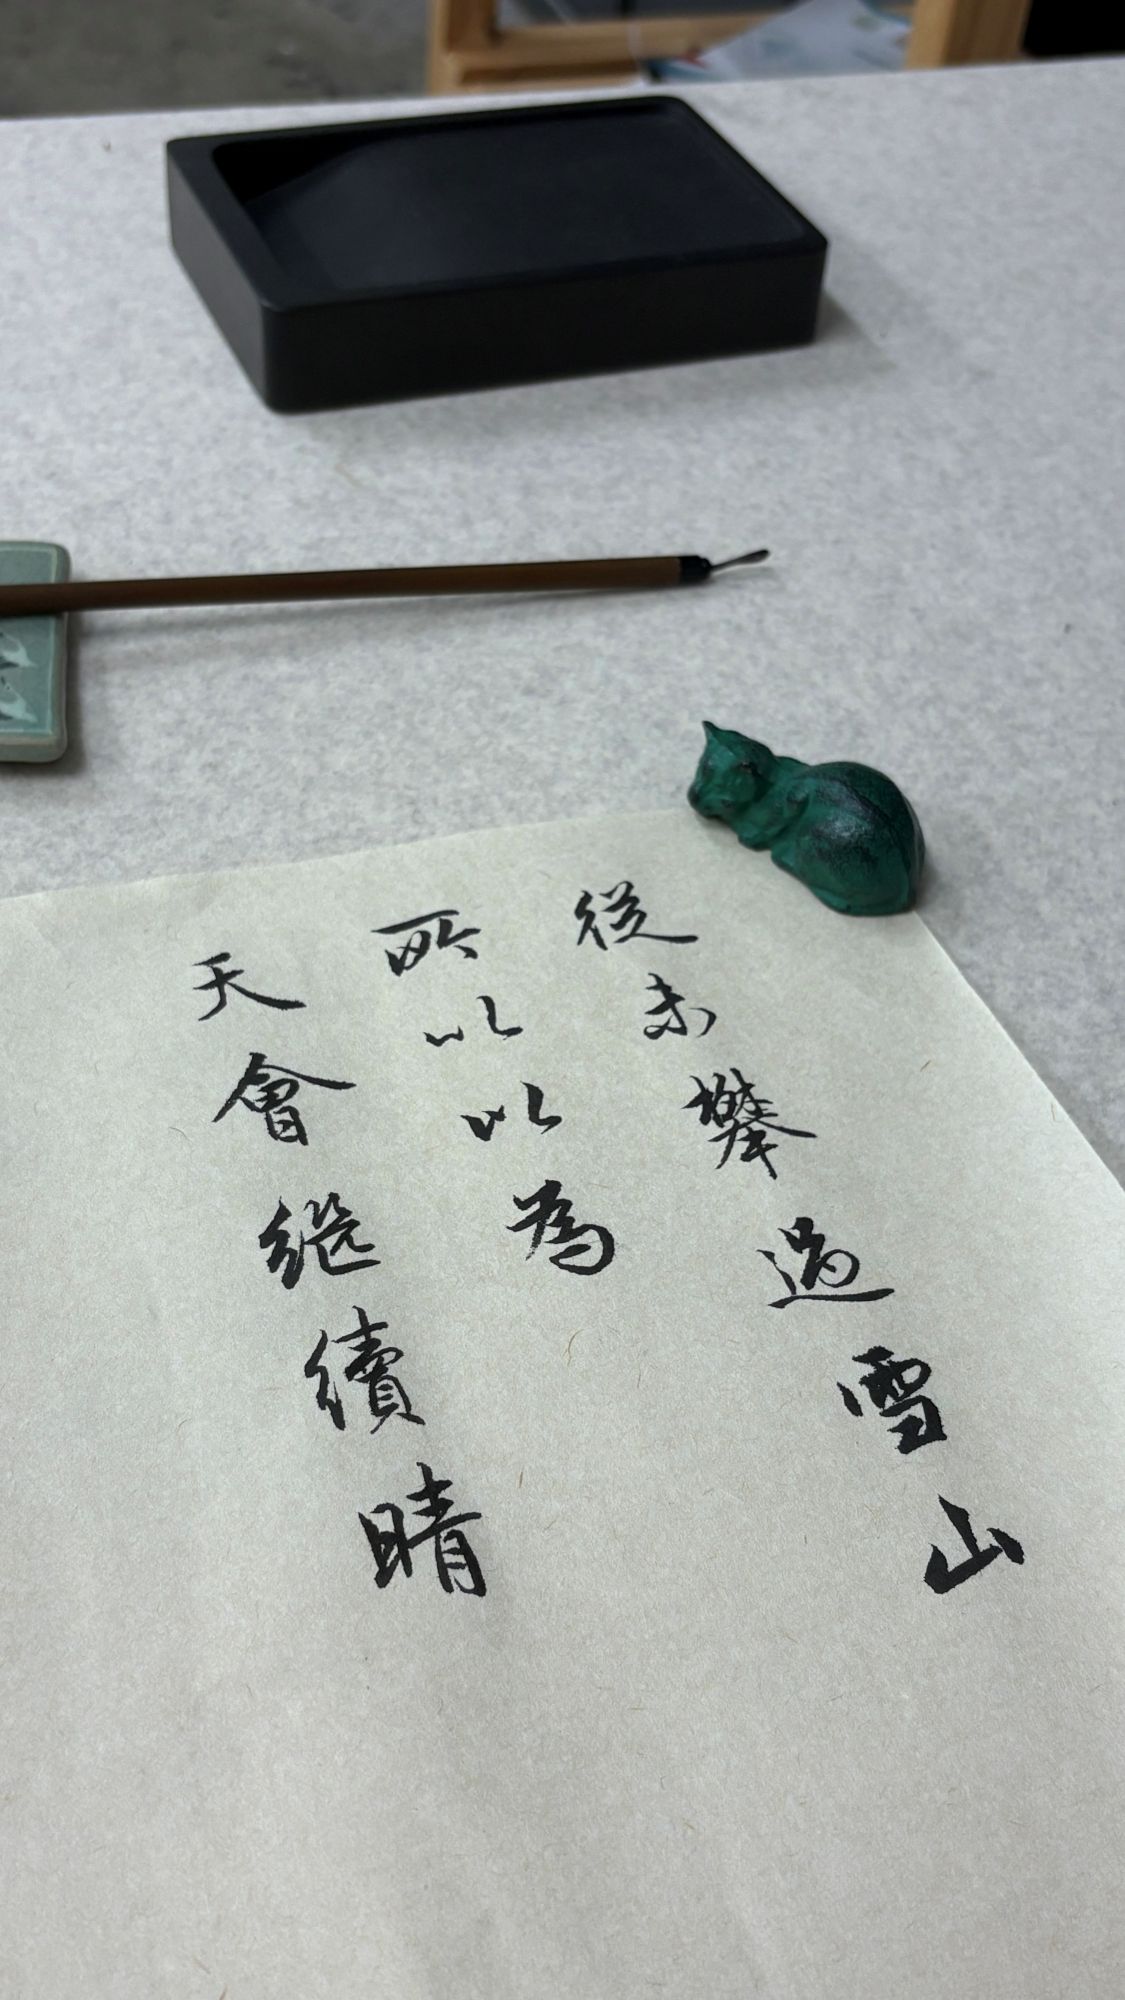 從未攀過雪山
所以以為
天會継續晴